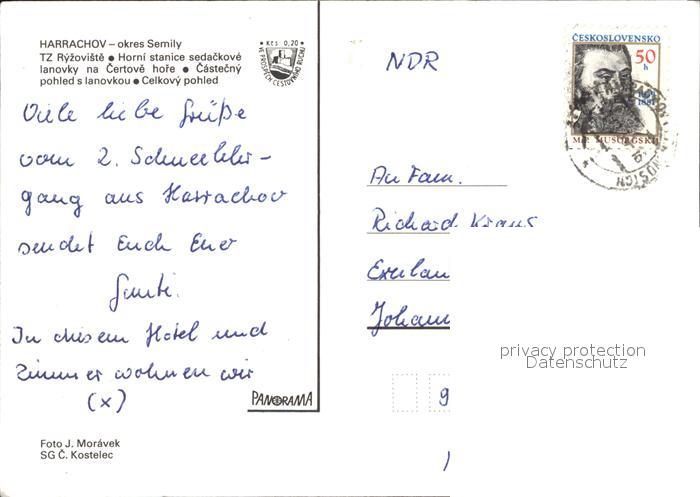 HARRACHOV – okres Semily
TZ Rýžoviště ● Horní stanice sedačkové
lanovky na Čertově hoře ● Částečný
pohled s lanovkou ● Celkový pohled
● Kčs 0,20 ●
VE PROSPĚCH CESTOVNÍHO RUCHU
Viele liebe Grüße
vom 2. Schneelehr-
gang aus Harrachov
sendet Euch Euer
In diesem Hotel und
Zimmer wohnen wir
(x)
PANORAMA
Foto J. Morávek
SG Č. Kostelec
NDR
ČESKOSLOVENSKO
50
h
1881
M.P. MUSORGSKIJ
An Fam.
Richard Kraus
Johann
9
privacy protection
Datenschutz